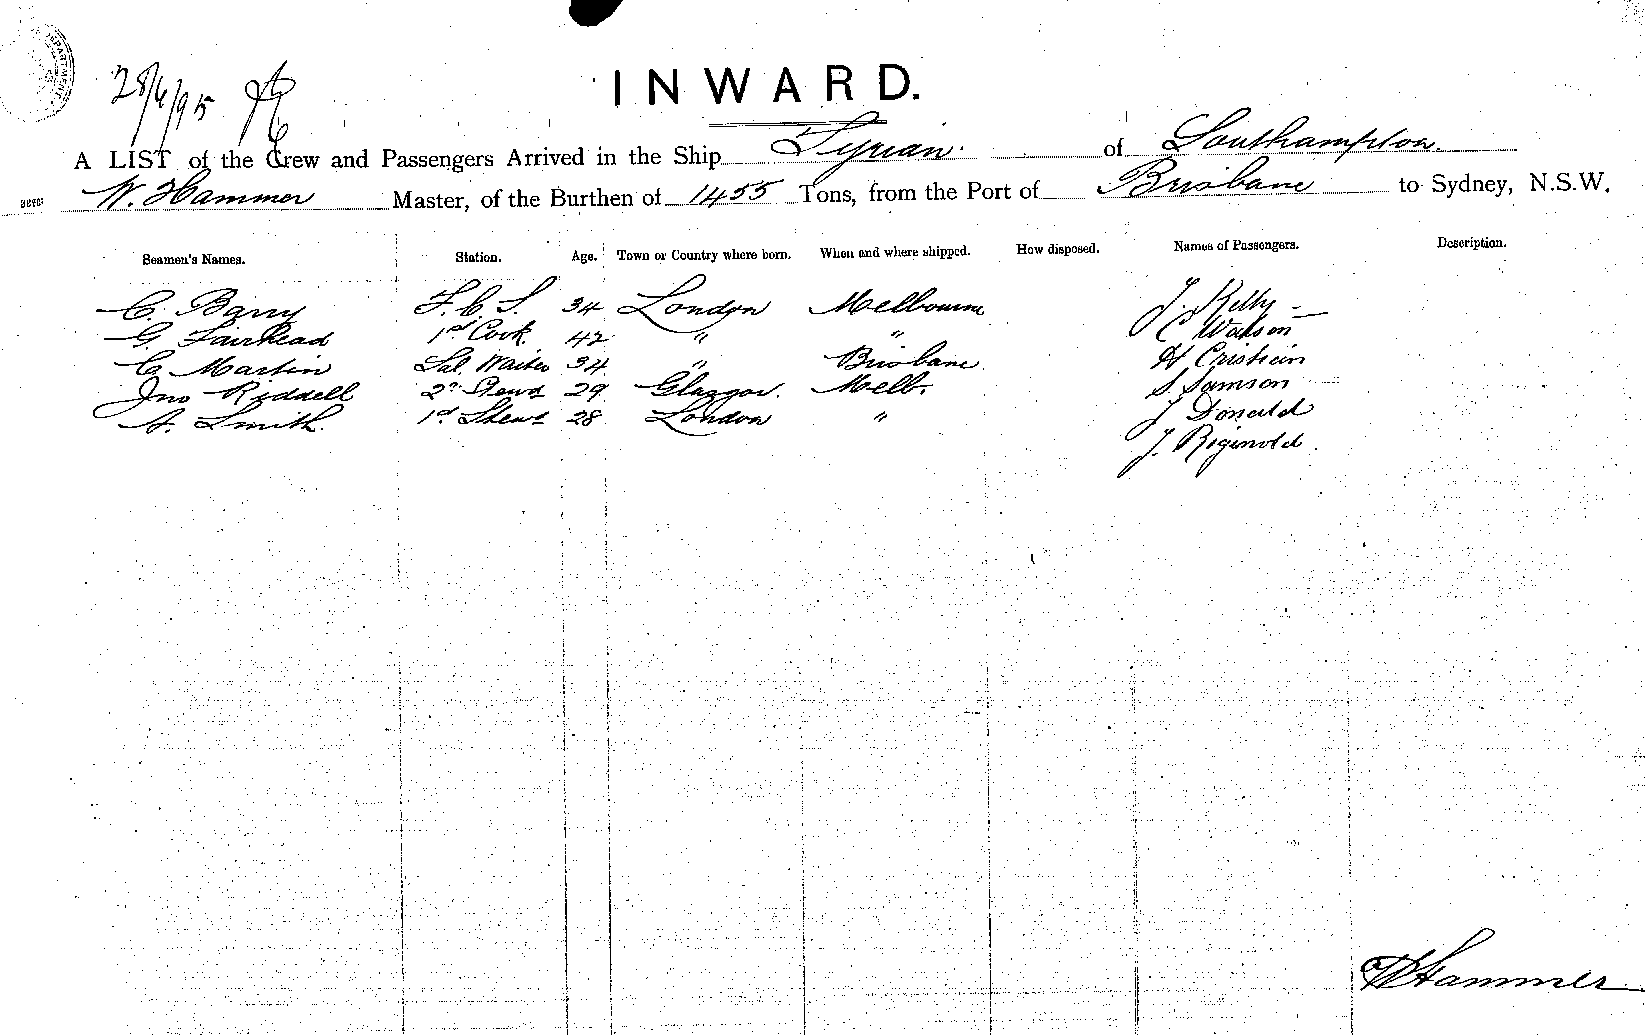 DEPARTMENT
28/6/95
INWARD.
A LIST of the Crew and Passengers Arrived in the Ship Tyrian. of Southampton.
W. Hammer Master, of the Burthen of 1455 Tons, from the Port of Brisbane to Sydney, N.S.W.
Seamen's Names. Station. Age. Town or Country where born. When and where shipped. How disposed. Names of Passengers. Description.
C. Barry F.C.S. 34 London Melbourne J. Kelly
G. Fairhead 1st Cook 42 " " C Watson
C. Martin Sal. Waiter 34 " Brisbane H
Jno Riddell 2nd Stewd 29 Glasgow. Melb. S Samson
A. Smith. 1st Stewd 28 London " J Donald
J. Reginold
W Hammer